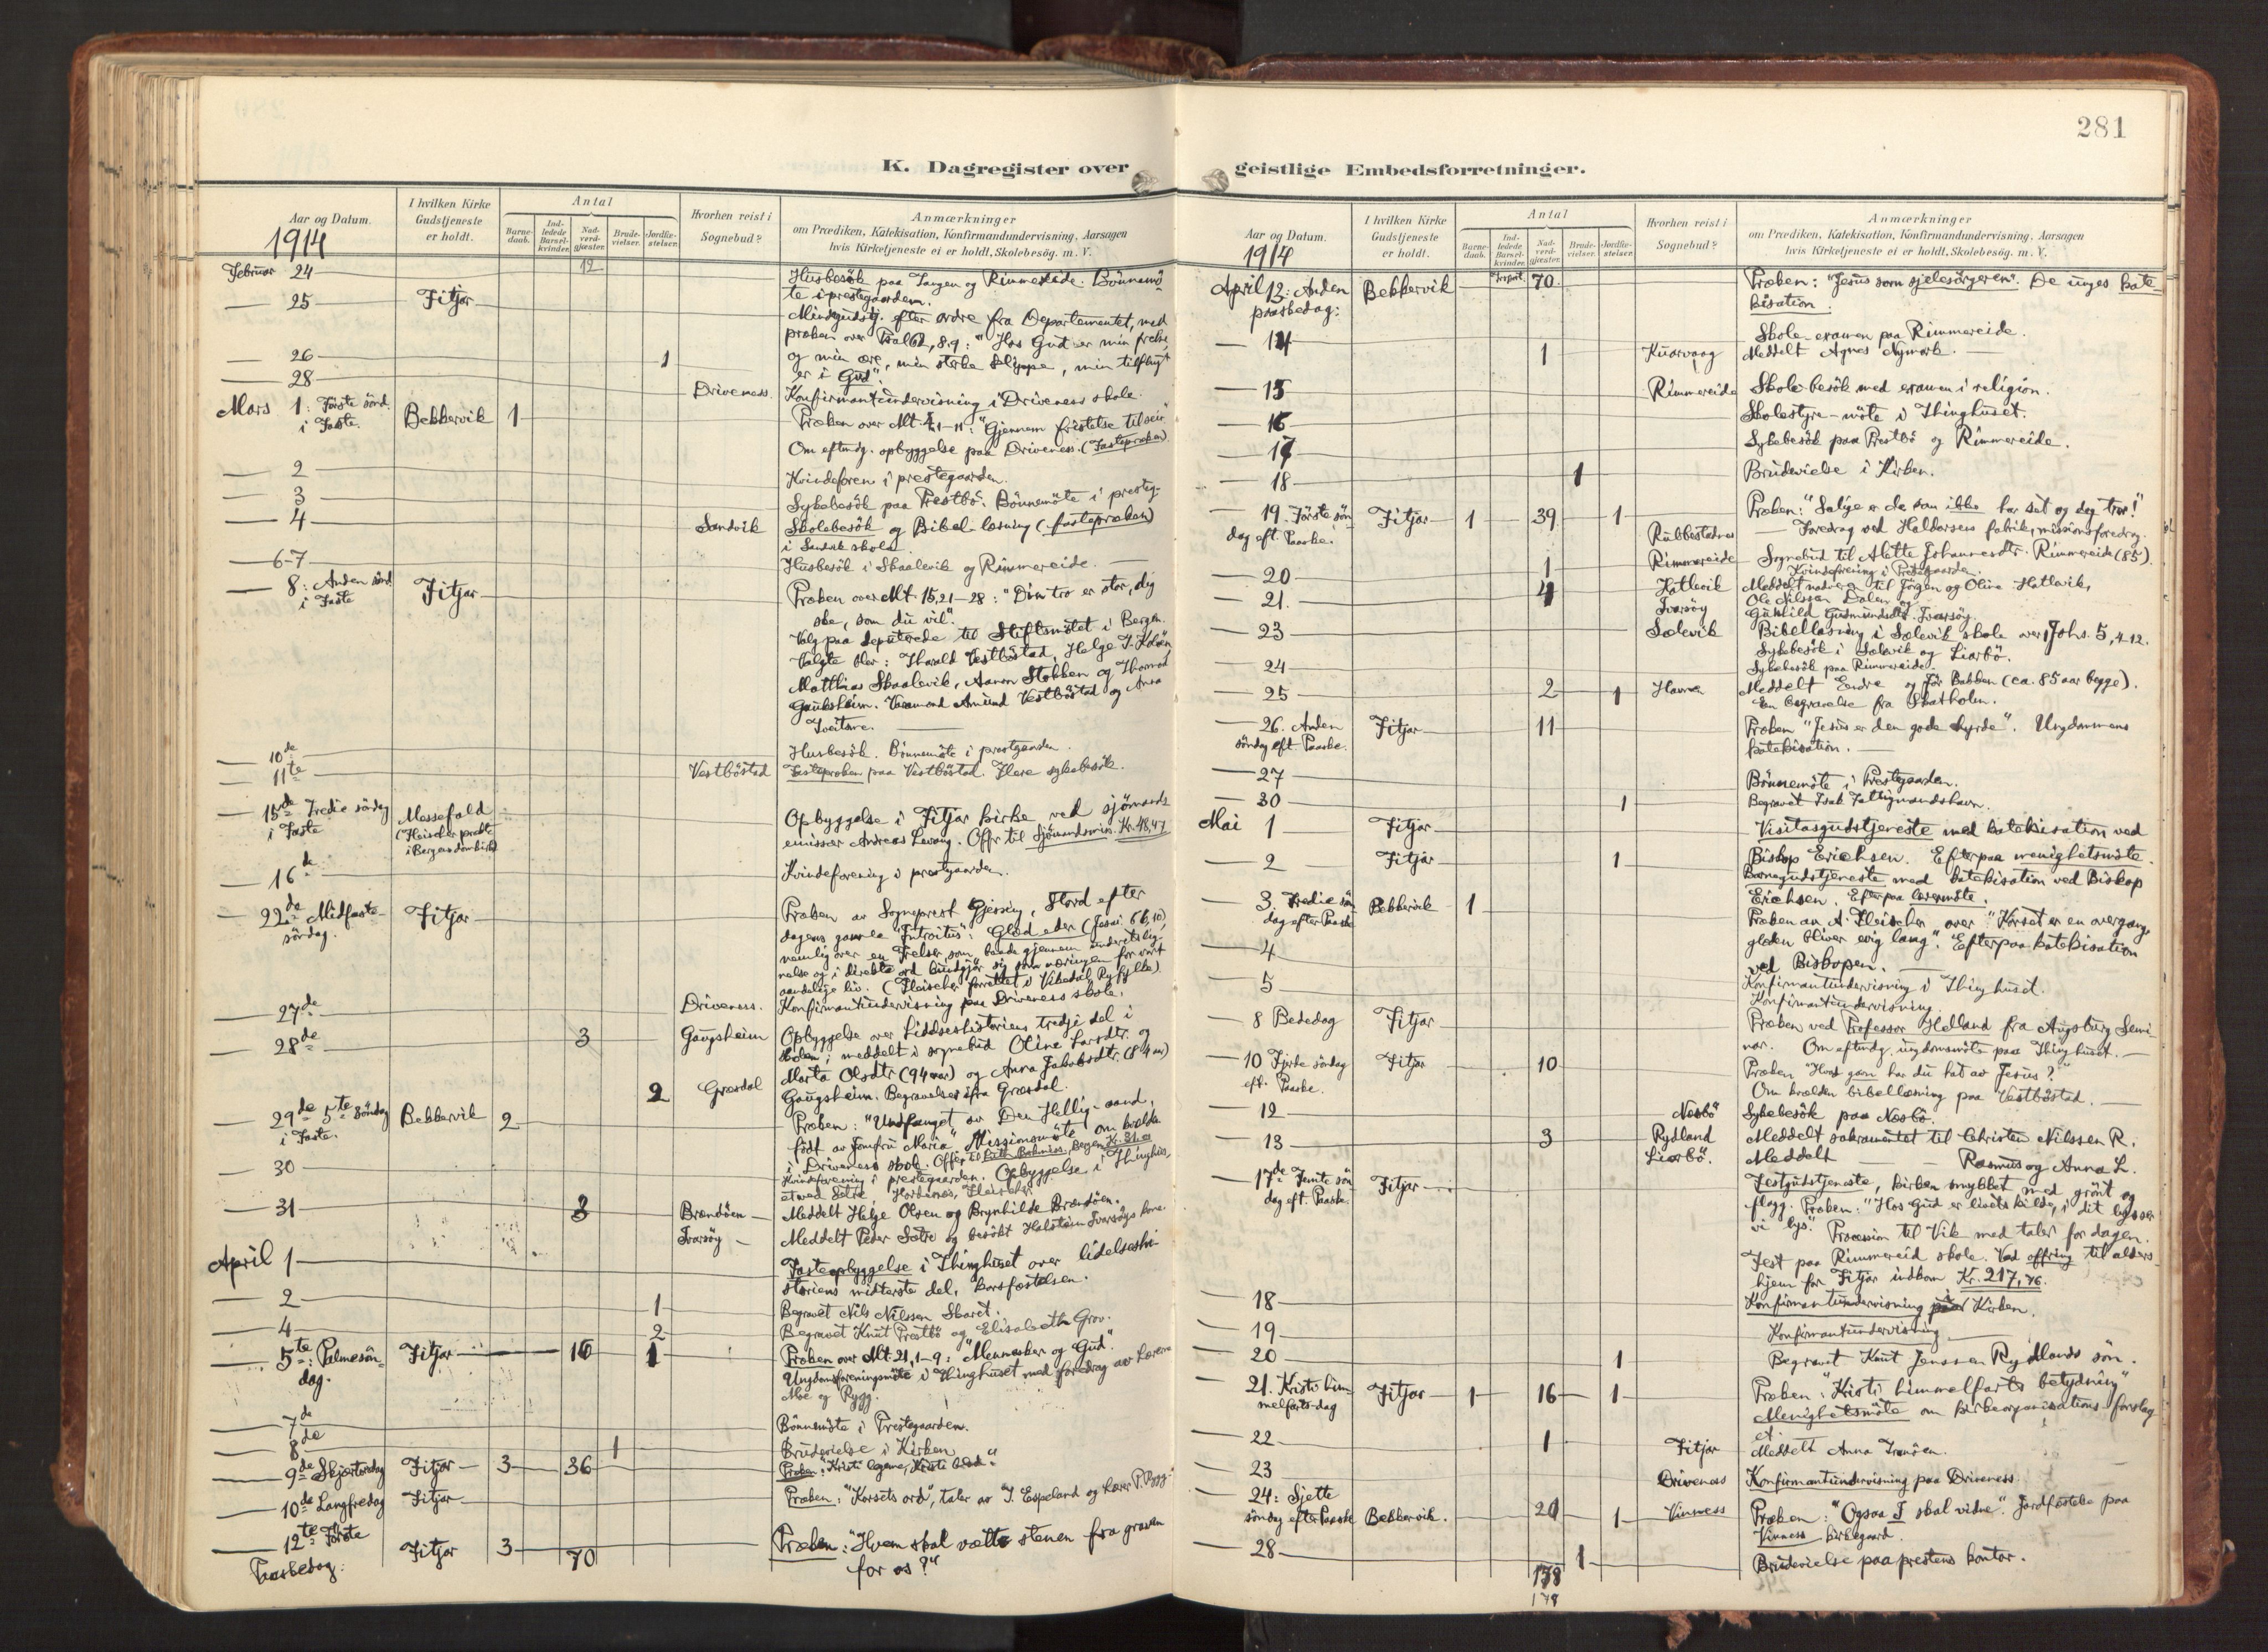 281
K. Dagregister over geistlige Embedsforretninger.
Aar og Datum.
I hvilken Kirke Gudstjeneste er holdt.
Antal
Barne-daab.
Ind-ledede Barsel-kvinder.
Nad-verd-gjæster.
Brude-vielser.
Jordfæ-stelser.
Hvorhen reist i Sognebud?
Anmærkninger
om Prædiken, Katekisation, Konfirmandundervisning, Aarsagen
hvis Kirketjeneste ei er holdt, Skolebesøg. m. V.
1914
12
Februar 24 Husbesök paa Tangen og Rimmereide. Bönnemö-
te i prestegaarden.
25 Fitjar Mindegudstj. efter ordre fra Departementet, med
præken over Salme 62, 8.9: "Hos Gud er min frelse
26 1 og min ære, min sterke klippe, min tilflugt
28 er i Gud".
Driveness. Konfirmantundervisning i Driveness skole.
Mars 1: Förste sönd. i Faste. Bekkervik 1 Præken over Mt. 4, 1-11: "Gjennem fristelse til seir"
Om eftmdg. opbyggelse paa Driveness. (Fastepræken)
2 Kvindeforen i prestegaarden.
3 Sykebesök paa Prestbö. Bönnemöte i presteg.
4 Sandvik Skolebesök og Bibel-læsning (fastepræken)
i Sandvik skole.
6-7 Husbesök i Skaalevik og Rimmereide.
8: Anden sönd. i Faste Fitjar Præken over Mt 15, 21-28: "Din tro er stor, dig
ske, som du vil".
Valg paa deputerede til Stiftsmötet i Bergen.
Valgte blev: Harald Vestböstad, Helge J. Koløen,
Matthias Skaalevik, Aamon Stokken og Thomas
Gauksheim. Varamænd Amund Vestböstad og Anna
Tveitare.
10de Husbesök. Bönnemöte i prestgaarden.
11te Vestböstad Fastepræken paa Vestböstad. Flere sykebesök.
15de Tredie söndag i Faste Messefald
(Fleischer prækte
i Bergens domkirke)
Opbyggelse i Fitjar kirke ved sjömands
emissær Andreas Levang. Offr til Sjömandsmis. Kr. 48,47
16de Kvindeforening i prestgaarden.
22de Midfaste-söndag. Fitjar Præken av Sogneprest Gjessing, Stord efter
dagens gamle "Introitus": Glæd eder (Jesai. 66, 10)
nemlig over en Frelser som baade gjennem underits lig-
nelse og i direkte ord kundgjör sig som næringen for vort
aandelige liv. (Fleischer forrettet i Vikedal, Ryfylke)
27de Driveness. Konfirmantundervisning paa Driveness skole.
28de 3 Gaugsheim Opbyggelse over Liddseshistoriens tredje del i
skolen; meddelt i sognebud Oline Larsdtr. og
Marta Olsdtr (94 aar) og Anna Jakobsdtr. (84 aar)
2 Græsdal Gaugsheim. Begravelser ifra Græsdal.
29de 5te söndag i Faste. Bekkervik 2 Præken: "Undfanget av Den Hellig-aand,
födt av Jomfru Maria". Missionsmöte om kvelden
i Driveness skole. Offer til
30 Kvindeforening i prestegaarden. Opbyggelse i Thinghus-
et med
31 3 Brandöen Meddelt Helge Olsen og Brynhilde Brandöen.
Ivarsöy Meddelt Peder Sætre og besökt Halstein Ivarsöys kone
April 1 Fasteopbyggelse i Thinghuset over lidelseshi-
storiens midterste del, korsfæstelsen.
2 1 Begravet Nils Nilssen Skaret.
4 2 Begravet Knut Prestbö og Elisabeth Grov.
5te: Palmesön-dag. Fitjar 16 1 Præken over Mt. 21, 1-9: "Mennesker og Gud".
Ungdomsforeningsmöte i Thinghuset med foredrag av Lærerne
Moe og Rygg.
7de Bönnemöte i Prestegaarden.
8de 1 Brudevielse i Kirken
9de Skjærtorsdag Fitjar 3 36 Præken: "Kristi legeme, Kristi blod."
10de Langfredag Fitjar Præken: "Korsets ord", taler av J. Espeland og Lærer P. Rygg.
12te Förste Paaskedag: Fitjar 3 70 Præken: "Hvem skal vælte stenen fra graven
for os?"
1914
Transport. 70
April 13: Anden paaskedag: Bekkervik Præken: "Jesus som sjelesörgeren". De unges kate-
kisation.
14 Skole examen paa Rimmereide.
1 Kuarvaag Meddelt Agnes Nymark.
15 Rimmereide Skolebesök med examen i religion.
16 Skolestyre-möte i Thinghuset.
17 Sykebesök paa Prestbö og Rimmereide.
18 1 Brudevielse i Kirken.
19. Förste sön-dag eft. Paaske. Fitjar 1 39 1 Præken: "Salige er de som ikke har set og dog tror!"
Rubbestadnes Foredrag ved Haldorsens fabrik, missionsforedrag.
20 1 Rimmereide Sognebud til Alette Johannesdtr. Rimmereide (85).
Kvindeforening i Prestegaarden.
21. 4 Hatlevik Meddelt nadvera til Jörgen og Oline Hatlevik,
Ivarsöy Ole Nilssen Dalen og
Gunhild Gudmundsdtr. Ivarsöy.
23 Sælevik Bibellæsning i Sælevik skole over 1 Joh. 5, 4-12.
Sykebesök i Sælevik og Liarbö.
24 Sykebesök paa Rimmereide.
25 2 1 Havn Meddelt Endre og Bakken (ca. 85 aar begge).
En begravelse fra Skatholm.
26. Anden söndag eft. Paaske. Fitjar 11 Præken "Jesus er den gode hyrde". Ungdommens
katekisation.
27 Bönnemöte i Prestegaarden.
30 1 Begravet Isak Fattigmandshavn.
Mai 1 Fitjar Visitasgudstjeneste med katekisation ved
Biskop Erichsen. Efterpaa menighetsmöte.
2 Fitjar 1 Barnegudstjeneste med katekisation ved Biskop
Erichsen. Efterpaa lærermöte.
3. Tredie sön-dag efter Paaske Bekkervik 1 Præken av A. Fleischer over "Korset er en overgang,
glæden bliver evig lang". Efterpaa katekisation
ved Biskopen.
4 Konfirmantundervisning i Thinghuset.
5 Konfirmantundervisning
8 Bededag Fitjar Præken ved Professor Helland fra Augsburg Semi-
nar. Om eftmdg. ungdomsmöte paa Thinghuset.
10 Fjerde söndag eft. Paaske. Fitjar 10 Præken "Hvad gavn har du hat av Jesus?"
Om kvelden bibellæsning paa Vestböstad.
12 Næsbö Sykebesök paa Næsbö.
13 3 Rydland Meddelt sakramentet til Christen Nilssen R.
Liarbö. Meddelt Rasmus og Anna L.
17de Femte sön-dag eft. Paaske. Fitjar Festgudstjeneste, kirken smykket med grönt og
flagg. Præken: "Hos Gud er livets kilde, i dit lys ser
vi lys". Procession til Vik med taler for dagen.
Fest paa Rimmereid skole. Ved offring til alders-
hjem for Fitjar indkom Kr. 217,76.
18 Konfirmantundervisning i Kirken.
19 Konfirmantundervisning
20 1 Begravet Knut Jenssen Rydlands sön.
21. Kristi him-melfarts-dag Fitjar 1 16 1 Præken: "Kristi himmelfarts betydning"
Menighetsmöte om kirkeorganisations-forslag
et.
22 1 Fitjar Meddelt Anna Tranöen.
23 Driveness Konfirmantundervisning paa Driveness.
24: Sjette söndag efter Paaske Bekkervik. 20 1 Vinness Præken: "Ogsaa I skal vidne". Jordfæstelse paa
Vinness kirkegaard.
28 1 Brudevielse paa prestens kontor.
178
178